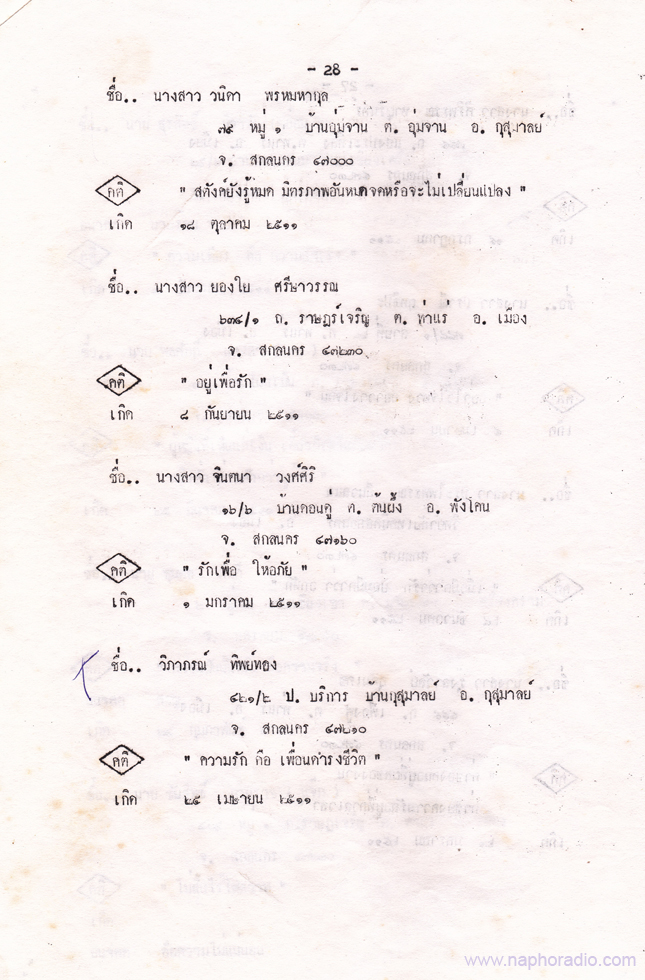 - 28 -
ชื่อ.. นางสาว วนิดา พรหมหากุล
๗๙ หมู่ ๑ บ้านอุ่มจาน ต. อุ่มจาน อ. กุสุมาลย์
จ. สกลนคร ๔๗๐๐๐
คติ " สตังค์ยังรู้หมด มิตรภาพอันหมดจดหรือจะไม่เปลี่ยนแปลง "
เกิด ๑๘ ตุลาคม ๒๕๑๑
ชื่อ.. นางสาว ยองใย ศรีษาวรรณ
๖๓๔/๑ ถ. ราษฎร์เจริญ ต. ท่าแร่ อ. เมือง
จ. สกลนคร ๔๗๒๓๐
คติ " อยู่เพื่อรัก "
เกิด ๘ กันยายน ๒๕๑๑
ชื่อ.. นางสาว จินตนา วงศ์ศิริ
๑๖/๖ บ้านดอนคู่ ต. ต้นผึ้ง อ. พังโคน
จ. สกลนคร ๔๗๑๖๐
คติ " รักเพื่อ ให้อภัย "
เกิด ๑ มกราคม ๒๕๑๑
ชื่อ.. วิภาภรณ์ ทิพย์ทอง
๔๒๑/๒ ป. บริการ บ้านกุสุมาลย์ อ. กุสุมาลย์
จ. สกลนคร ๔๗๒๑๐
คติ " ความรัก คือ เพื่อนดำรงชีวิต "
เกิด ๒๕ เมษายน ๒๕๑๑
www.naphoradio.com